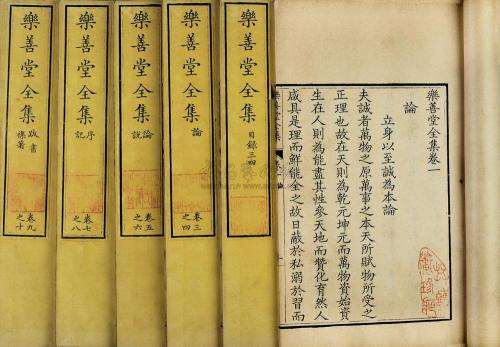 樂善堂全集卷一
論
立身以至誠為本論
夫誠者萬物之原萬事之本天所賦物所受之
正理也故在天則為乾元坤元而萬物資始資
生在人則為能盡其性參天地而贊化育然人
咸具是理而鮮能全之故日蔽於私溺於習而
樂善堂全集
樂善堂全集
目錄三四
樂善堂全集
論
卷三之四
樂善堂全集
論說
卷五之六
樂善堂全集
序記
卷七之八
樂善堂全集
跋書雜著
卷九之十